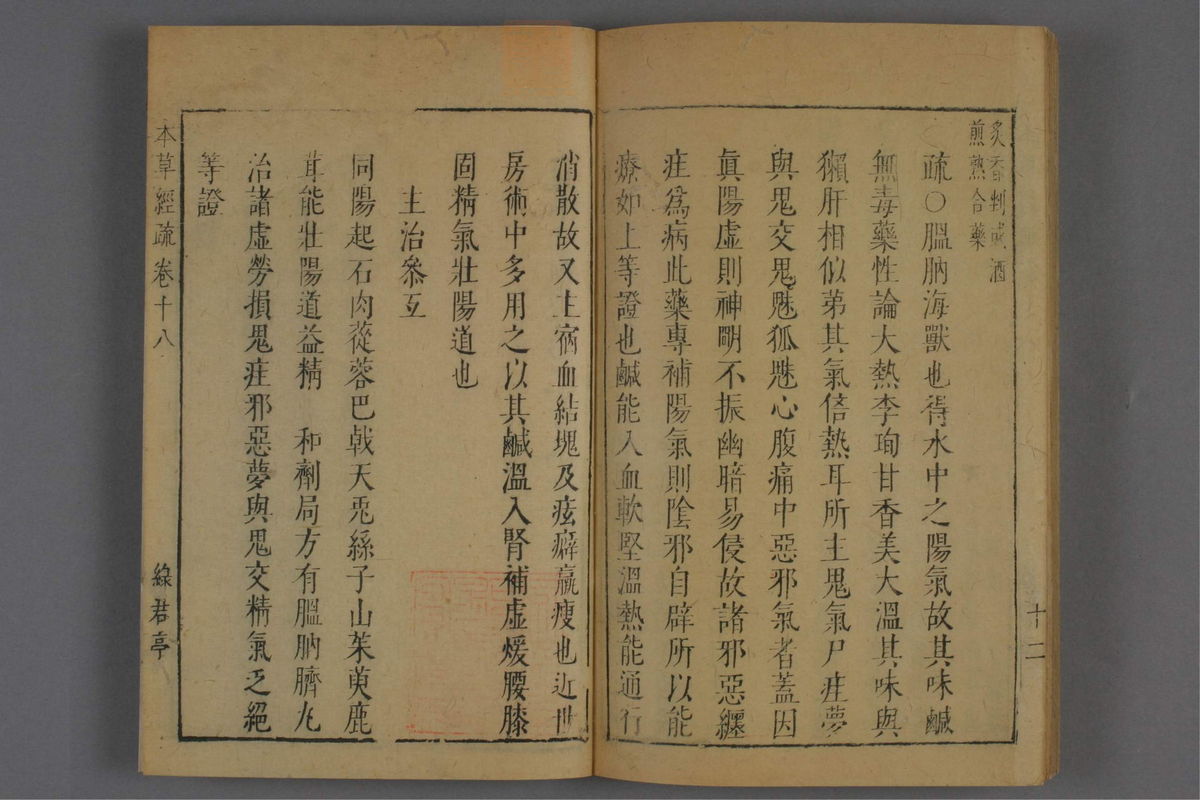 炙香剉或酒
煎熟合藥
疏○膃肭海獸也得水中之陽氣故其味鹹
無毒藥性論大熱李珣甘香美大溫其味與
獺肝相似第其氣倍熱耳所主鬼氣尸疰夢
與鬼交鬼魅狐魅心腹痛中惡邪氣者蓋因
眞陽虛則神明不振幽暗易侵故諸邪惡纏
疰爲病此藥專補陽氣則陰邪自辟所以能
療如上等證也鹹能入血軟堅溫熱能通行
消散故又主宿血結塊及痃癖羸瘦也近世
房術中多用之以其鹹溫入腎補虛煖腰膝
固精氣壯陽道也
主治叅互
同陽起石肉蓯蓉巴戟天兎絲子山茱萸鹿
茸能壯陽道益精 和劑局方有膃肭臍丸
治諸虛勞損鬼疰邪惡夢與鬼交精氣乏絕
等證
本草經疏 卷十八
綠君亭
十二